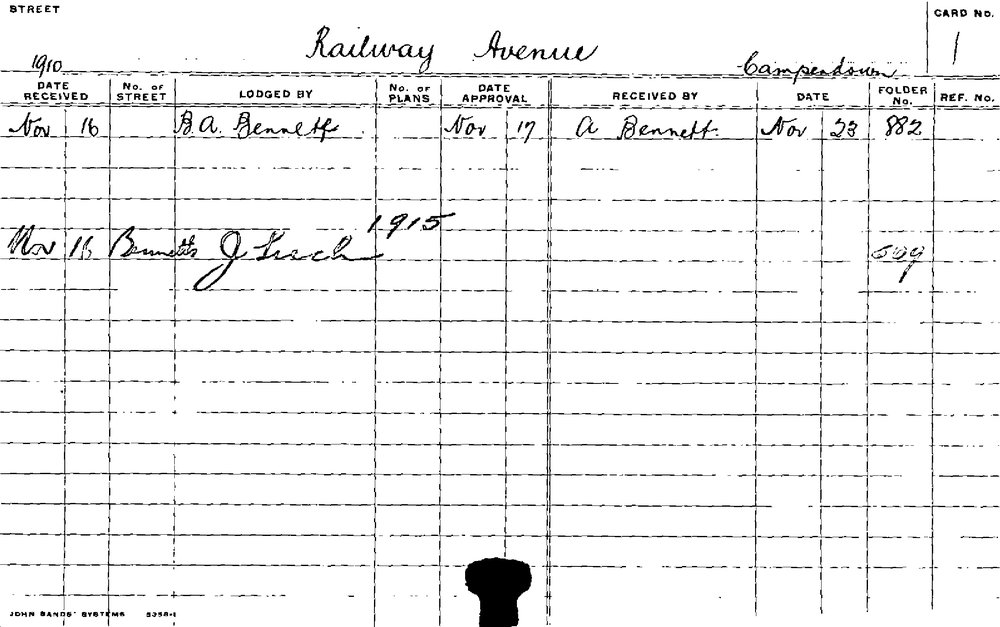 STREET
CARD NO.
Railway Avenue
1
1910
Campendown
DATE RECEIVED No. OF STREET LODGED BY No. OF PLANS DATE APPROVAL RECEIVED BY DATE FOLDER No. REF. No.
Nov 16 B.A. Bennett Nov 17 A Bennett Nov 23 882
1915
Nov 16 Bennetts J
JOHN SANDS' SYSTEMS 5358-1